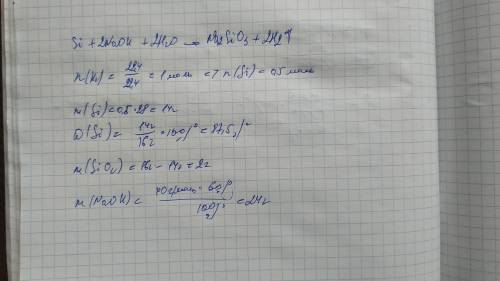 Si + 2NaOH + 2H₂O → Na₂SiO₃ + 2H₂↑
n(H₂) = 22,4 / 22,4 = 1 моль => n(Si) = 0,5 моль
m(Si) = 0,5 · 28 = 14г
ω(Si) = 14г / 16г · 100% = 87,5%
m(SiO₂) = 16г - 14г = 2г
m(NaOH) = · 60% / 100% = 24г